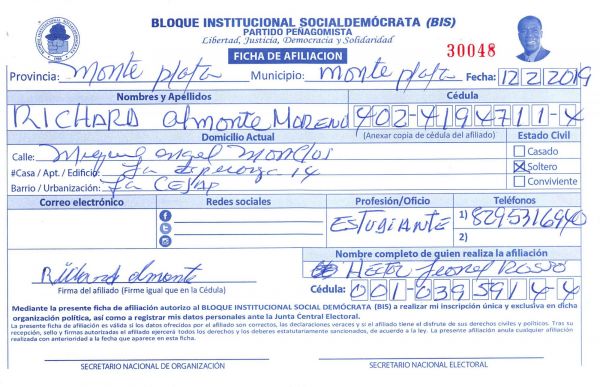 BLOQUE INSTITUCIONAL SOCIALDEMÓCRATA (BIS)
PARTIDO PEÑAGOMISTA
Libertad, Justicia, Democracia y Solidaridad
FICHA DE AFILIACION
30048
Provincia: Monte plata Municipio: Monte plata Fecha: 12 2 2019
Nombres y Apellidos Cédula
RICHARD almonte MORENO 402-4194711-4
Domicilio Actual (Anexar copia de cédula del afiliado) Estado Civil
Calle: Miguel angel Monclus
Casado
#Casa / Apt. / Edificio: La Esperanza 14
Soltero
Barrio / Urbanización: La
Conviviente
Correo electrónico Redes sociales Profesión/Oficio Teléfonos
ESTUDIANTE 1) 8295316940
2)
Nombre completo de quien realiza la afiliación
Richard almonte HECTOR Leonel ROSSO
Firma del afiliado (Firme igual que en la Cédula) Cédula: 001-0395914-4
Mediante la presente ficha de afiliación autorizo al BLOQUE INSTITUCIONAL SOCIAL DEMÓCRATA (BIS) a realizar mi inscripción única y exclusiva en dicha
organización política, así como a registrar mis datos personales ante la Junta Central Electoral.
La presente ficha de afiliación es válida si los datos ofrecidos por el afiliado son correctos, las declaraciones veraces y si el afiliado tiene el disfrute de sus derechos civiles y políticos. Tras su
recepción, sello y firmas autorizadas el afiliado ejercerá todos los derechos y los deberes estatutariamente sancionados, de acuerdo a la ley. La presente afiliación anula cualquier afiliación
realizada con anterioridad a la fecha que aparece en esta ficha.
SECRETARIO NACIONAL DE ORGANIZACIÓN SECRETARIO NACIONAL ELECTORAL